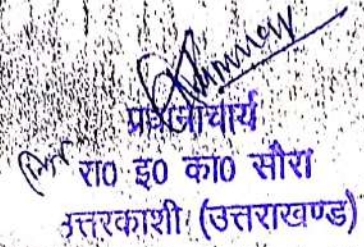 प्रधानाचार्य
रा0 इ0 का0 सौरा
उत्तरकाशी (उत्तराखण्ड)